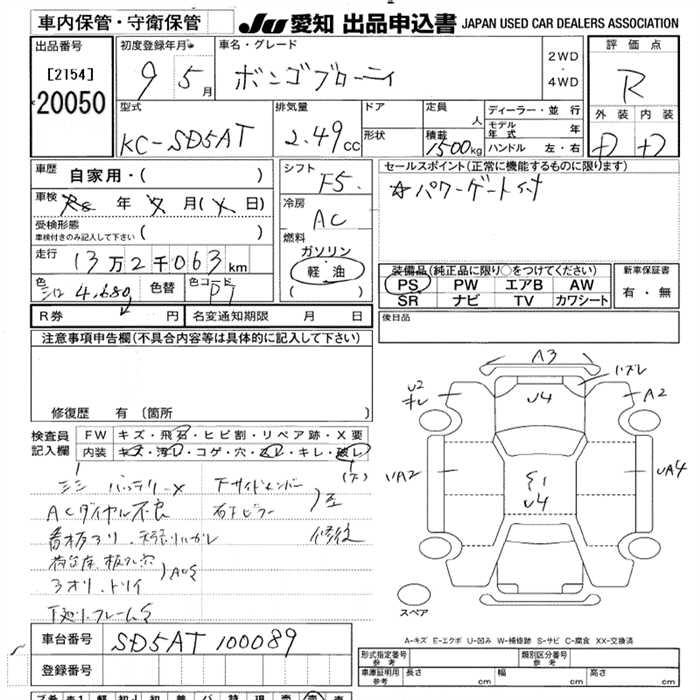 車内保管・守衛保管
JU 愛知 出品申込書 JAPAN USED CAR DEALERS ASSOCIATION
出品番号
[2154]
20050
初度登録年月
9 5月
車名・グレード
ボンゴブローニィ
2WD
・
4WD
評価点
R
外装 内装
D D
型式
KC-SD5AT
排気量
2.49cc
ドア
形状
定員 人
積載 1500kg
ディーラー・並行
モデル年式 年
ハンドル 左・右
車歴
自家用・( )
車検 年 月( 日)
受検形態
車検付きのみ記入して下さい ( )
走行
13万2千063km
色 シロ 4,680
色替
色コード P7
シフト
F5
冷房
AC
燃料
ガソリン
軽油
( )
セールスポイント(正常に機能するものに限ります)
☆パワーゲート付
装備品(純正品に限り○をつけてください)
PS PW エアB AW
SR ナビ TV カワシート
新車保証書
有・無
R券 円
名変通知期限 月 日
後日品
注意事項申告欄(不具合内容等は具体的に記入して下さい)
修復歴 有 (箇所 )
検査員記入欄
FW キズ・飛石・ヒビ割・リペア跡・X要
内装 キズ・汚レ・コゲ・穴・スレ・キレ・破レ
バッテリーX
ACダイヤル不良
下サイドメンバー
右下ピラー
修復
3オリ、トリイ
フレームS
車台番号 SD5AT 100089
登録番号
A3
ハズレ
U2
キレ
A2
U4
UA2
UA4
U4
スペア
A-キズ E-エクボ U-凹み W-補修跡 S-サビ C-腐食 XX-交換済
形式指定番号
参考
類別区分番号
参考
車庫証明用
参考
長さ cm 幅 cm 高さ cm